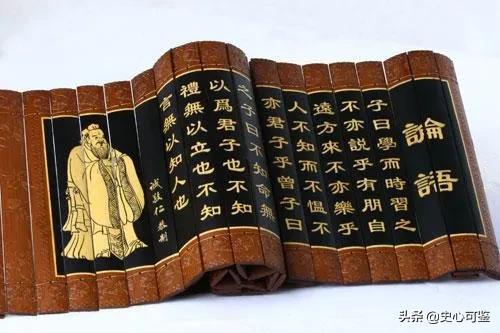 論語
子曰學而時習之
不亦說乎有朋自
遠方來不亦樂乎
人不知而不愠不
亦君子乎曾子曰
之子曰不知命無
以爲君子也不知
禮無以立也不知
言無以知人也
头条 @史心可鉴